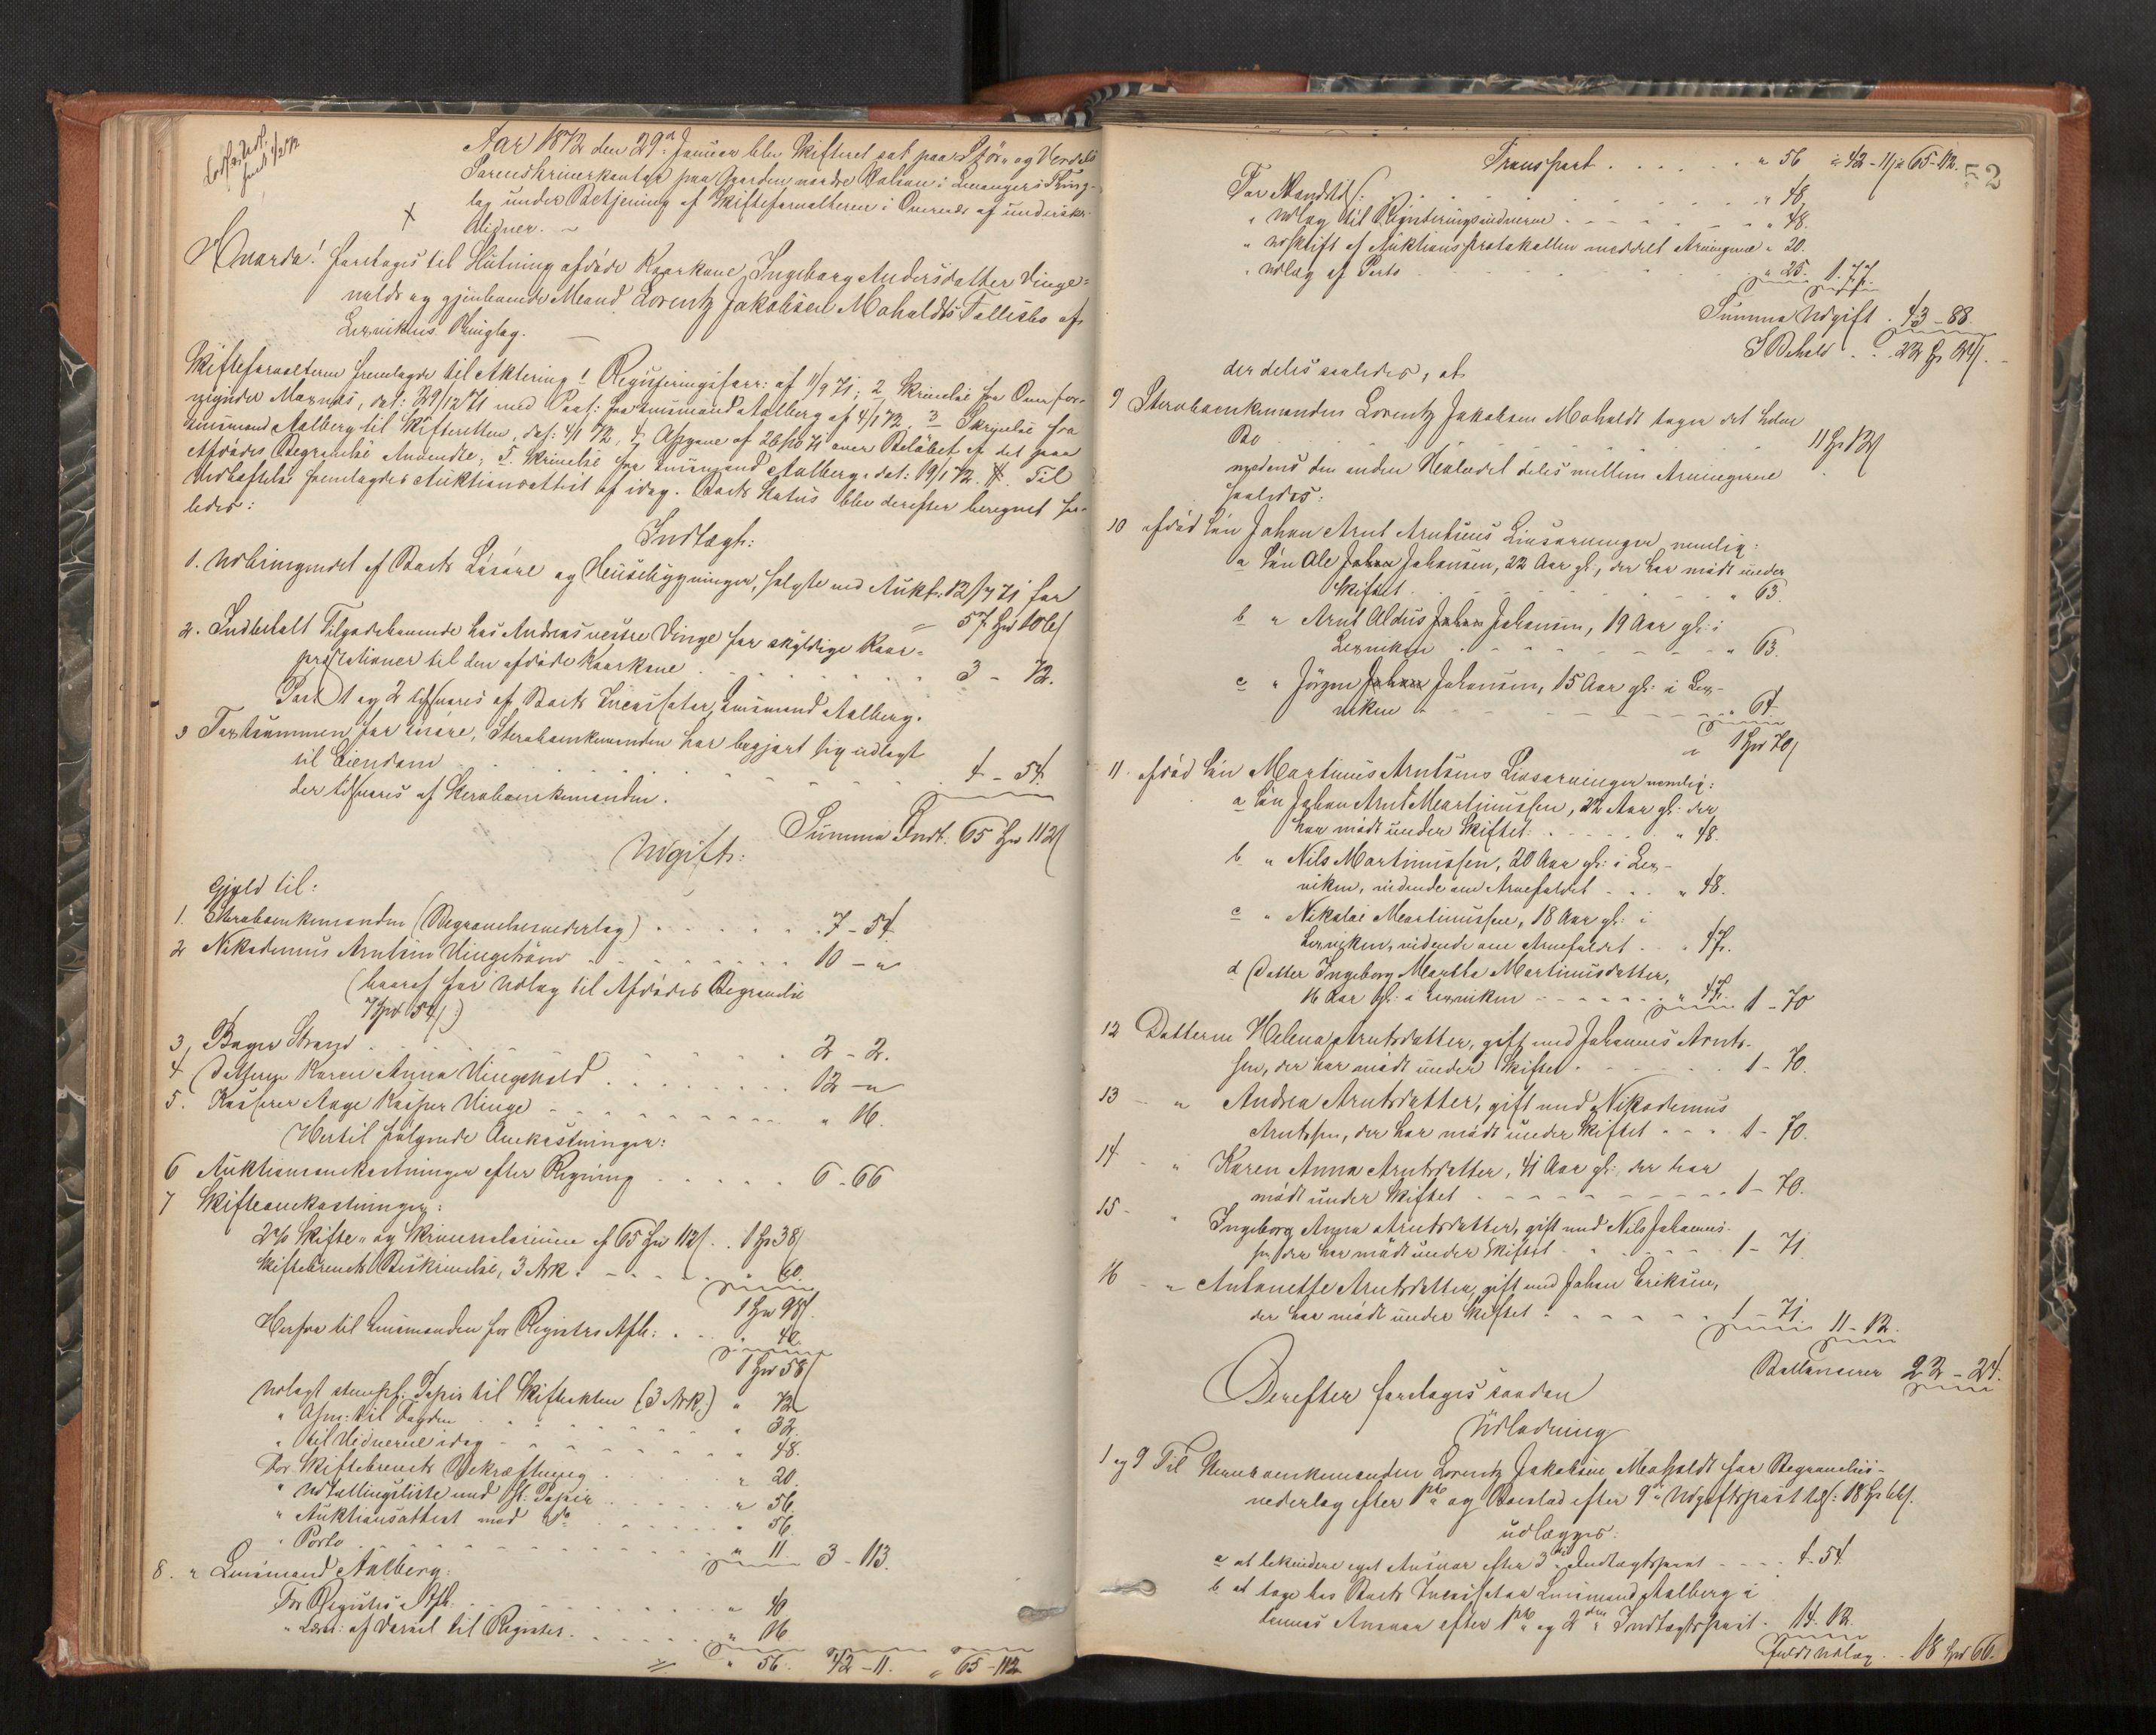 Aar 1872 den 29de Januar blev Skifteret sat paa Stör- og Verdals
Sorenskriverkontor paa Gaarden nordre i Levangers Thing-
lag under Betjening af Skifteforvalteren i Overvær af underskr:
Vidner. ~
Hvorda! foretoges til Slutning afdöde Kaarkone Ingeborg Andersdatter Vinge-
volds og gjenlevende Mand Lorentz Jakobsen Moholdts Fællesbo af
Lexvikens Thinglag.
Skifteforvalteren fremlagde til Aktering 1 Registeringsforr: af 11/9 71; 2 Skrivelse fra Overfor-
mynder dat: 29/12 71 med Paat: fra Lensmand Aalberg af 4/1 72, 3 Skrivelse fra
Lensmand Aalberg til Skifteretten, dat: 4/1 72, 4 Opgave af 26/10 71 over Belöbet af det paa
Afdödes Begravelse Anvendte; 5. Skrivelse fra Lensmand Aalberg, dat: 19/1 72. Til
Vedhæftelse fremlagdes Auktionsattest af idag. Boets Status blev derefter beregnet saa-
ledes:
Indtægt:
1. Udbringendet af Boets Lösöre og Huusebygninger, solgte ved Aukt: 12/ 71 for
57 Spd 106 s
2. Indbetalt Tilgodehavende hos Andreas vestre Vinge for skyldige Kaar-
præstationer til den afdöde Kaarkone . . . 3 - 72.
Post 1 og 2 tilsvares af Boets Incassator, Lensmand Aalberg.
3 Taxtsummen for Lösöre, Sterboenkemanden har begjært sig udlagt
til Eiendom . . . 4 - 54.
der tilsvares af Sterboenkemanden.
Summa Indt: 65 Spd 112 s
Udgift:
Gjæld til:
1. Sterboenkemanden (Begravelsesvederlag) . . . 7 - 54.
2 Nikodemus Arntsen Vingstrand . . . 10 - "
(hvoraf for Udlæg til Afdödes Begravelse
7 Spd 54 s)
3, Bager Strand . . . 2 - 2.
4 Datteren Karen Anna Vingevold . . . 12 - "
5. Kasserer Aage Kasper Vinge . . . " 16.
Hertil fölgende Omkostninger:
6 Auktionsomkostninger efter Regning . . . 6 - 66
7 Skifteomkostninger:
2% Skifte- og Skriversalarium af 65 Spd 112 s . . 1 Sp 38 s
Skiftebrevets Beskrivelse, 3 Ark . . . " 60.
1 Spd 98 s.
Herfra til Lensmanden for Registrs Afh: . . . " 40.
1 Spd 58 s
Udlagt stempl. Papir til Skifteakten (3 Ark.) " 72
" Afm: til Fogden . . . " 32.
" til Vidnerne idag . . . " 48.
For Skiftebrevets Bekræftning . . . " 20.
" Udtællingsliste med st: Papir . . . " 56.
" Auktionsattest med do . . . " 56.
" Porto . . . " 11. 3 - 113.
8. " Lensmand Aalberg:
For Registrs Afh: . . . " 40
" af Varsel til Registr. . . . " 16
" 56. 42 - 11. " 65 - 112
52
Transport . . . " 56 " 42 - 11 " 65 - 112.
For Mandtil . . . " 48.
" Udlæg til Registeringsvidnerne . . . " 48.
" Udskrift af Auktionsprotokollen meddelt Arvingerne " 20.
" Udlæg af Porto . . . " 25. 1. 77.
Summa Udgift . 43 - 88.
I Behold . . 22 Sp 24 s.
der deles saaledes, at
9 Sterboenkemanden Lorentz Jakobsen Moholdt tager det halve
Bo . . . 11 Sp 12 s
medens den anden Halvdel deles mellem Arvingerne
saaledes:
10 afdöd Sön Johan Arnt Arntsens Livsarvinger, nemlig:
a Sön Ole Johan Johansen, 22 Aar gl:, der har mödt under
Skiftet . . . " 63.
b " Arnt Aldus Johan Johansen, 19 Aar gl: i
Lexviken . . . " 63.
c " Jörgen Johan Johansen, 15 Aar gl: i Lex-
viken . . . " 64.
" 1 Spd 70 s
11. afdöd Sön Martinus Arntsens Livsarvinger nemlig:
a Sön Johan Arnt Martinussen, 22 Aar gl: der
har mödt under Skiftet: . . . " 48.
b " Nils Martinussen, 20 Aar gl: i Lex-
viken, vidende om Arvefaldet . . . " 48.
c " Nikolai Martinussen, 18 Aar gl: i
Lexviken, vidende om Arvefaldet . . " 47.
d Datter Ingeborg Martha Martinusdatter,
16 Aar gl: i Lexviken . . . " 47. 1 - 70
12 Datteren Helena Arntsdatter, gift med Johannes Arnt-
sen, der har mödt under Skiftet . . . 1 - 70.
13 - " Andrea Arntsdatter, gift med Nikodemus
Arntssen, der har mödt under Skiftet . . . 1 - 70.
14 - " Karen Anna Arntsdatter, 41 Aar gl: der har
mödt under Skiftet . . . 1 - 70.
15 - " Ingeborg Anna Arntsdatter, gift med Nils Johannes-
sen der har mödt under Skiftet . . . 1 - 71
16 - " Antonette Arntsdatter, gift med Johan Eriksen,
der har mödt under Skiftet . . . 1 - 71. 11 - 12.
Ballancerer 22 - 24.
Derefter foretoges saadan
Udlodning
1 og 9 Til Sterboenkemanden Lorentz Jakobsen Moholdt for Begravelses-
vederlag efter 1ste og Boeslod efter 9de Udgiftspost tils: 18 Sp 66 s.
udlægges:
a at likvidere eget Ansvar efter 3die Indtægtspost . . . 4 - 54.
b at tage hos Boets Incassator Lensmand Aalberg i
dennes Ansvar efter 1ste og 2den Indtægtspost . 14. 12.
Fuldt Udlæg . . 18 Spd 66.